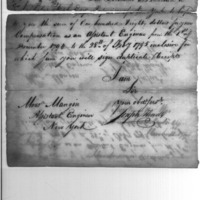 you the sum of One hundred & eight dollars for your
Compensation as an Assistant Engineer from the 1st
December 1794 to the 28th of Feby 1795 inclusive for
which sum you will sign duplicate Receipts
I am
Sir
Your Obt Servt
Monr Mangin
Assistant Engineer
New York